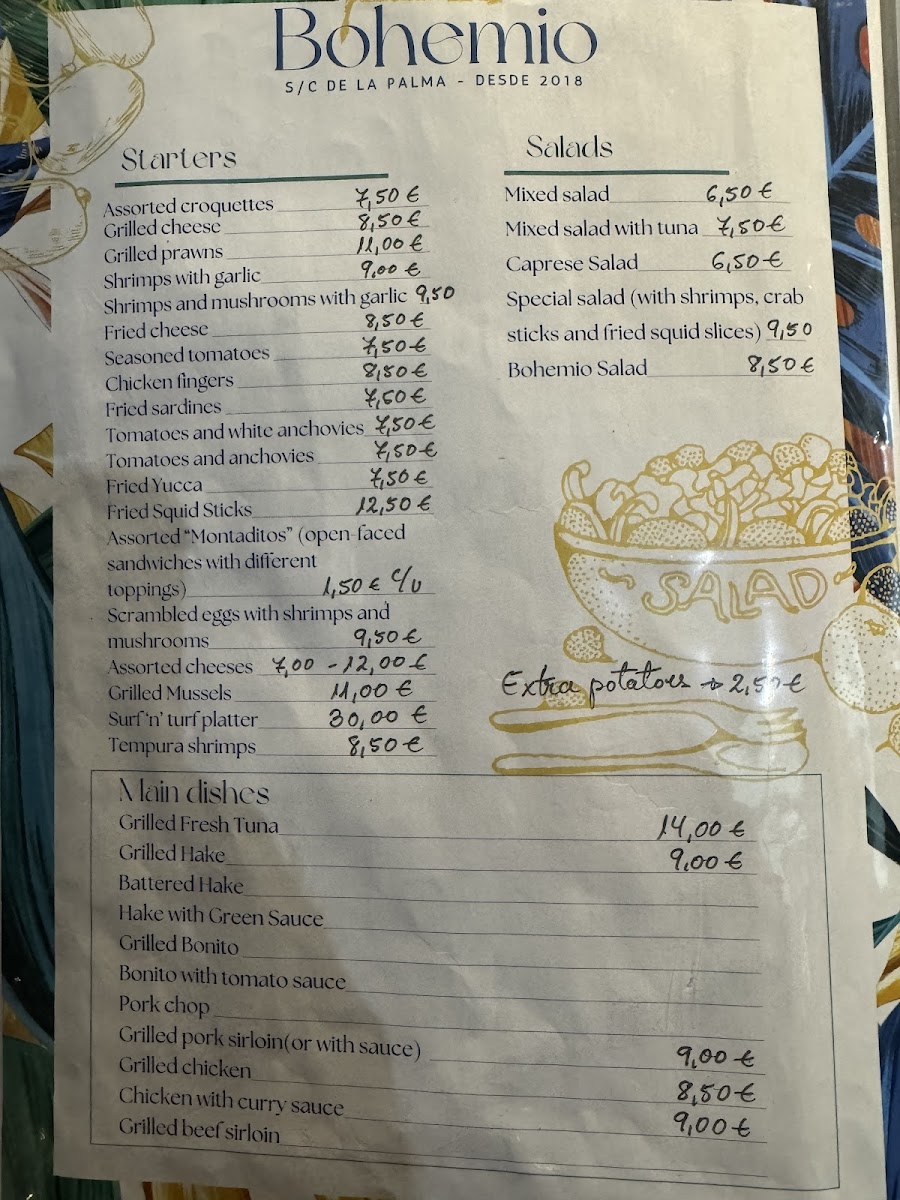 Bohemio
S/C DE LA PALMA - DESDE 2018
Starters
Assorted croquettes 7,50 €
Grilled cheese 8,50 €
Grilled prawns 11,00 €
Shrimps with garlic 9,00 €
Shrimps and mushrooms with garlic 9,50
Fried cheese 8,50 €
Seasoned tomatoes 7,50 €
Chicken fingers 8,50 €
Fried sardines 7,50 €
Tomatoes and white anchovies 7,50 €
Tomatoes and anchovies 7,50 €
Fried Yucca 7,50 €
Fried Squid Sticks 12,50 €
Assorted "Montaditos" (open-faced
sandwiches with different
toppings) 1,50 € c/u
Scrambled eggs with shrimps and
mushrooms 9,50 €
Assorted cheeses 7,00 - 12,00 €
Grilled Mussels 11,00 €
Surf 'n' turf platter 30,00 €
Tempura shrimps 8,50 €
Salads
Mixed salad 6,50 €
Mixed salad with tuna 7,50 €
Caprese Salad 6,50 €
Special salad (with shrimps, crab
sticks and fried squid slices) 9,50
Bohemio Salad 8,50 €
SALAD
Extra potatoes → 2,50 €
Main dishes
Grilled Fresh Tuna 14,00 €
Grilled Hake 9,00 €
Battered Hake
Hake with Green Sauce
Grilled Bonito
Bonito with tomato sauce
Pork chop
Grilled pork sirloin(or with sauce) 9,00 €
Grilled chicken 8,50 €
Chicken with curry sauce 9,00 €
Grilled beef sirloin